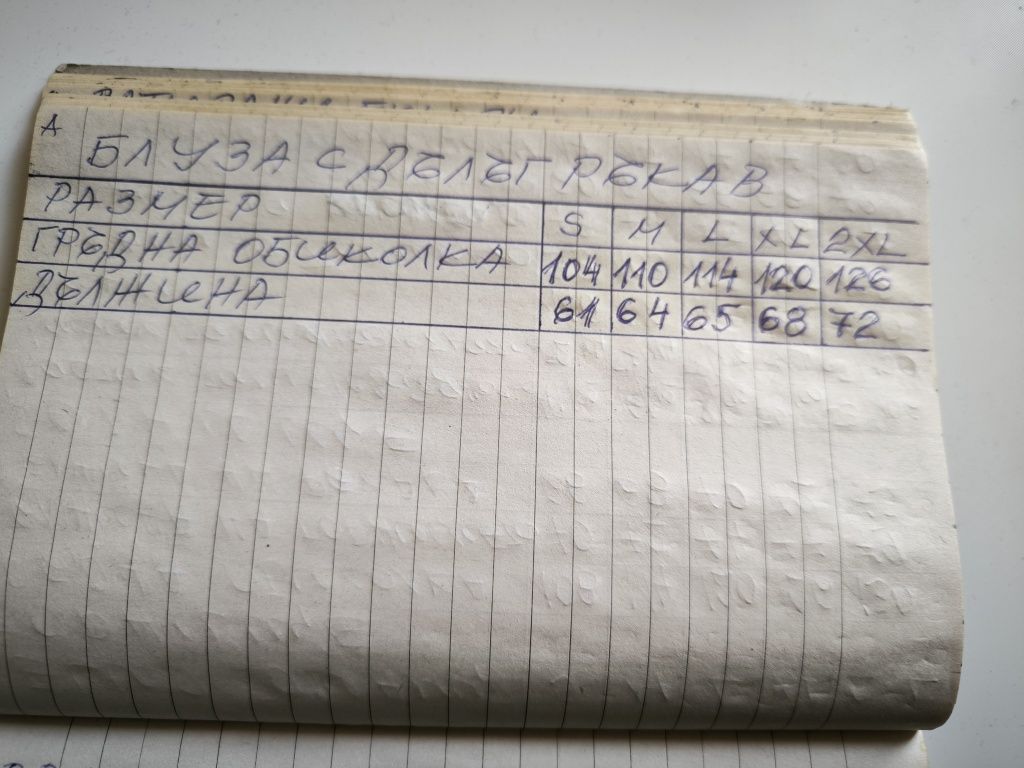 А
БЛУЗА С ДЪЛЪГ РЪКАВ
РАЗМЕР S M L XL 2XL
ГРЪДНА ОБИКОЛКА 104 110 114 120 126
ДЪЛЖИНА 61 64 65 68 72